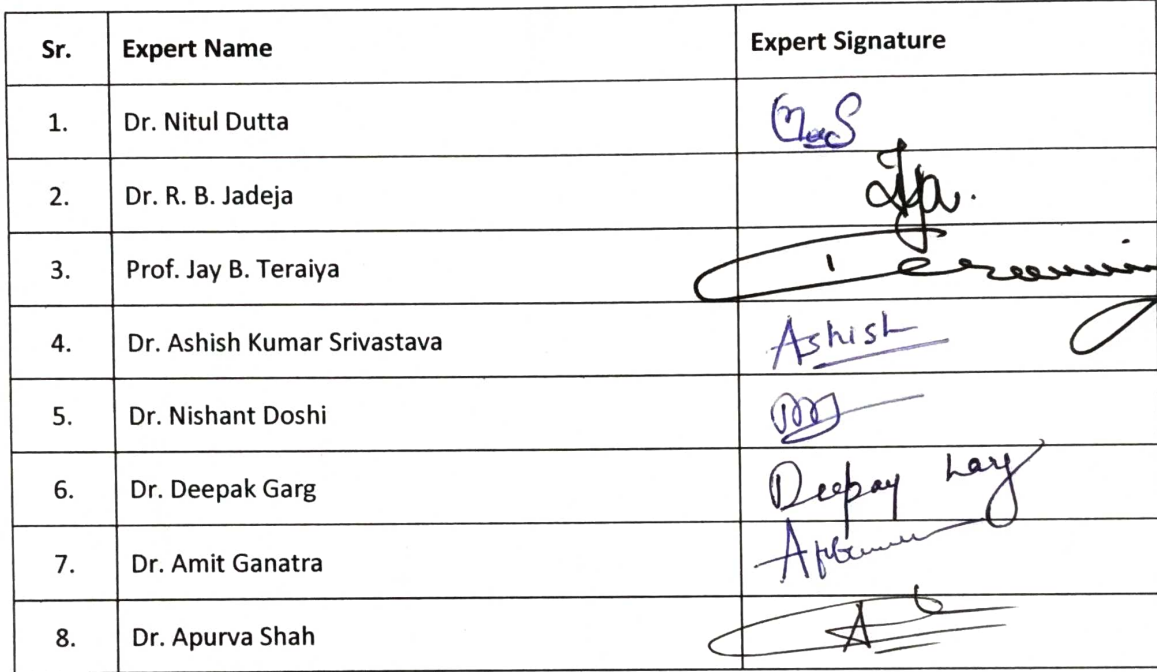 Sr. Expert Name Expert Signature
1. Dr. Nitul Dutta
2. Dr. R. B. Jadeja
3. Prof. Jay B. Teraiya
4. Dr. Ashish Kumar Srivastava Ashish
5. Dr. Nishant Doshi
6. Dr. Deepak Garg
7. Dr. Amit Ganatra
8. Dr. Apurva Shah